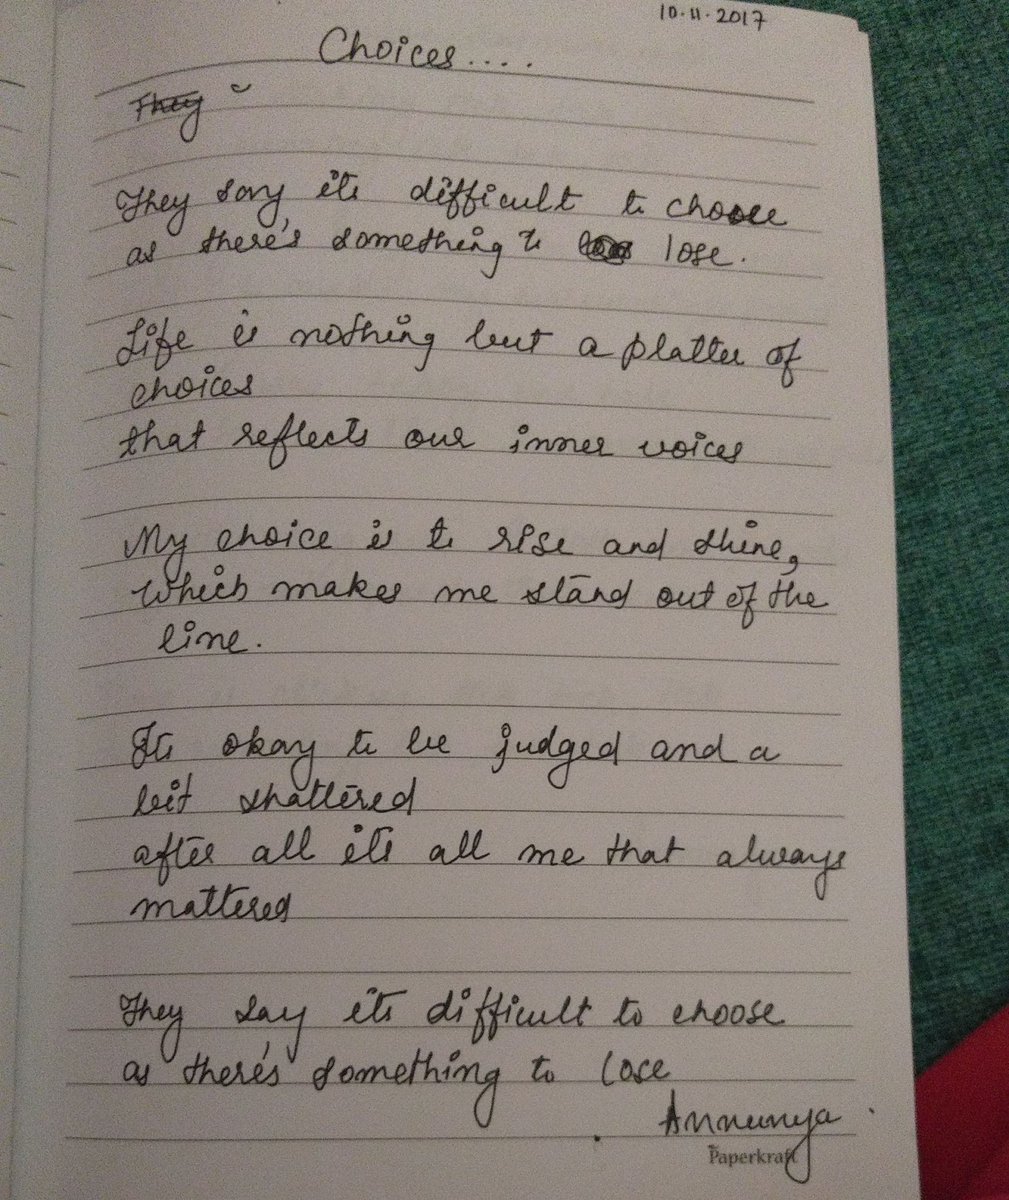 10.11.2017
Choices....
They
They say, its difficult to choose
as there's something to lose.
Life is nothing but a platter of
choices
that reflects our inner voices
My choice is to rise and shine,
which makes me stand out of the
line.
Its okay to be judged and a
bit shattered
after all its all me that always
mattered
They say its difficult to choose
as there's something to lose
Annunya
Paperkraft